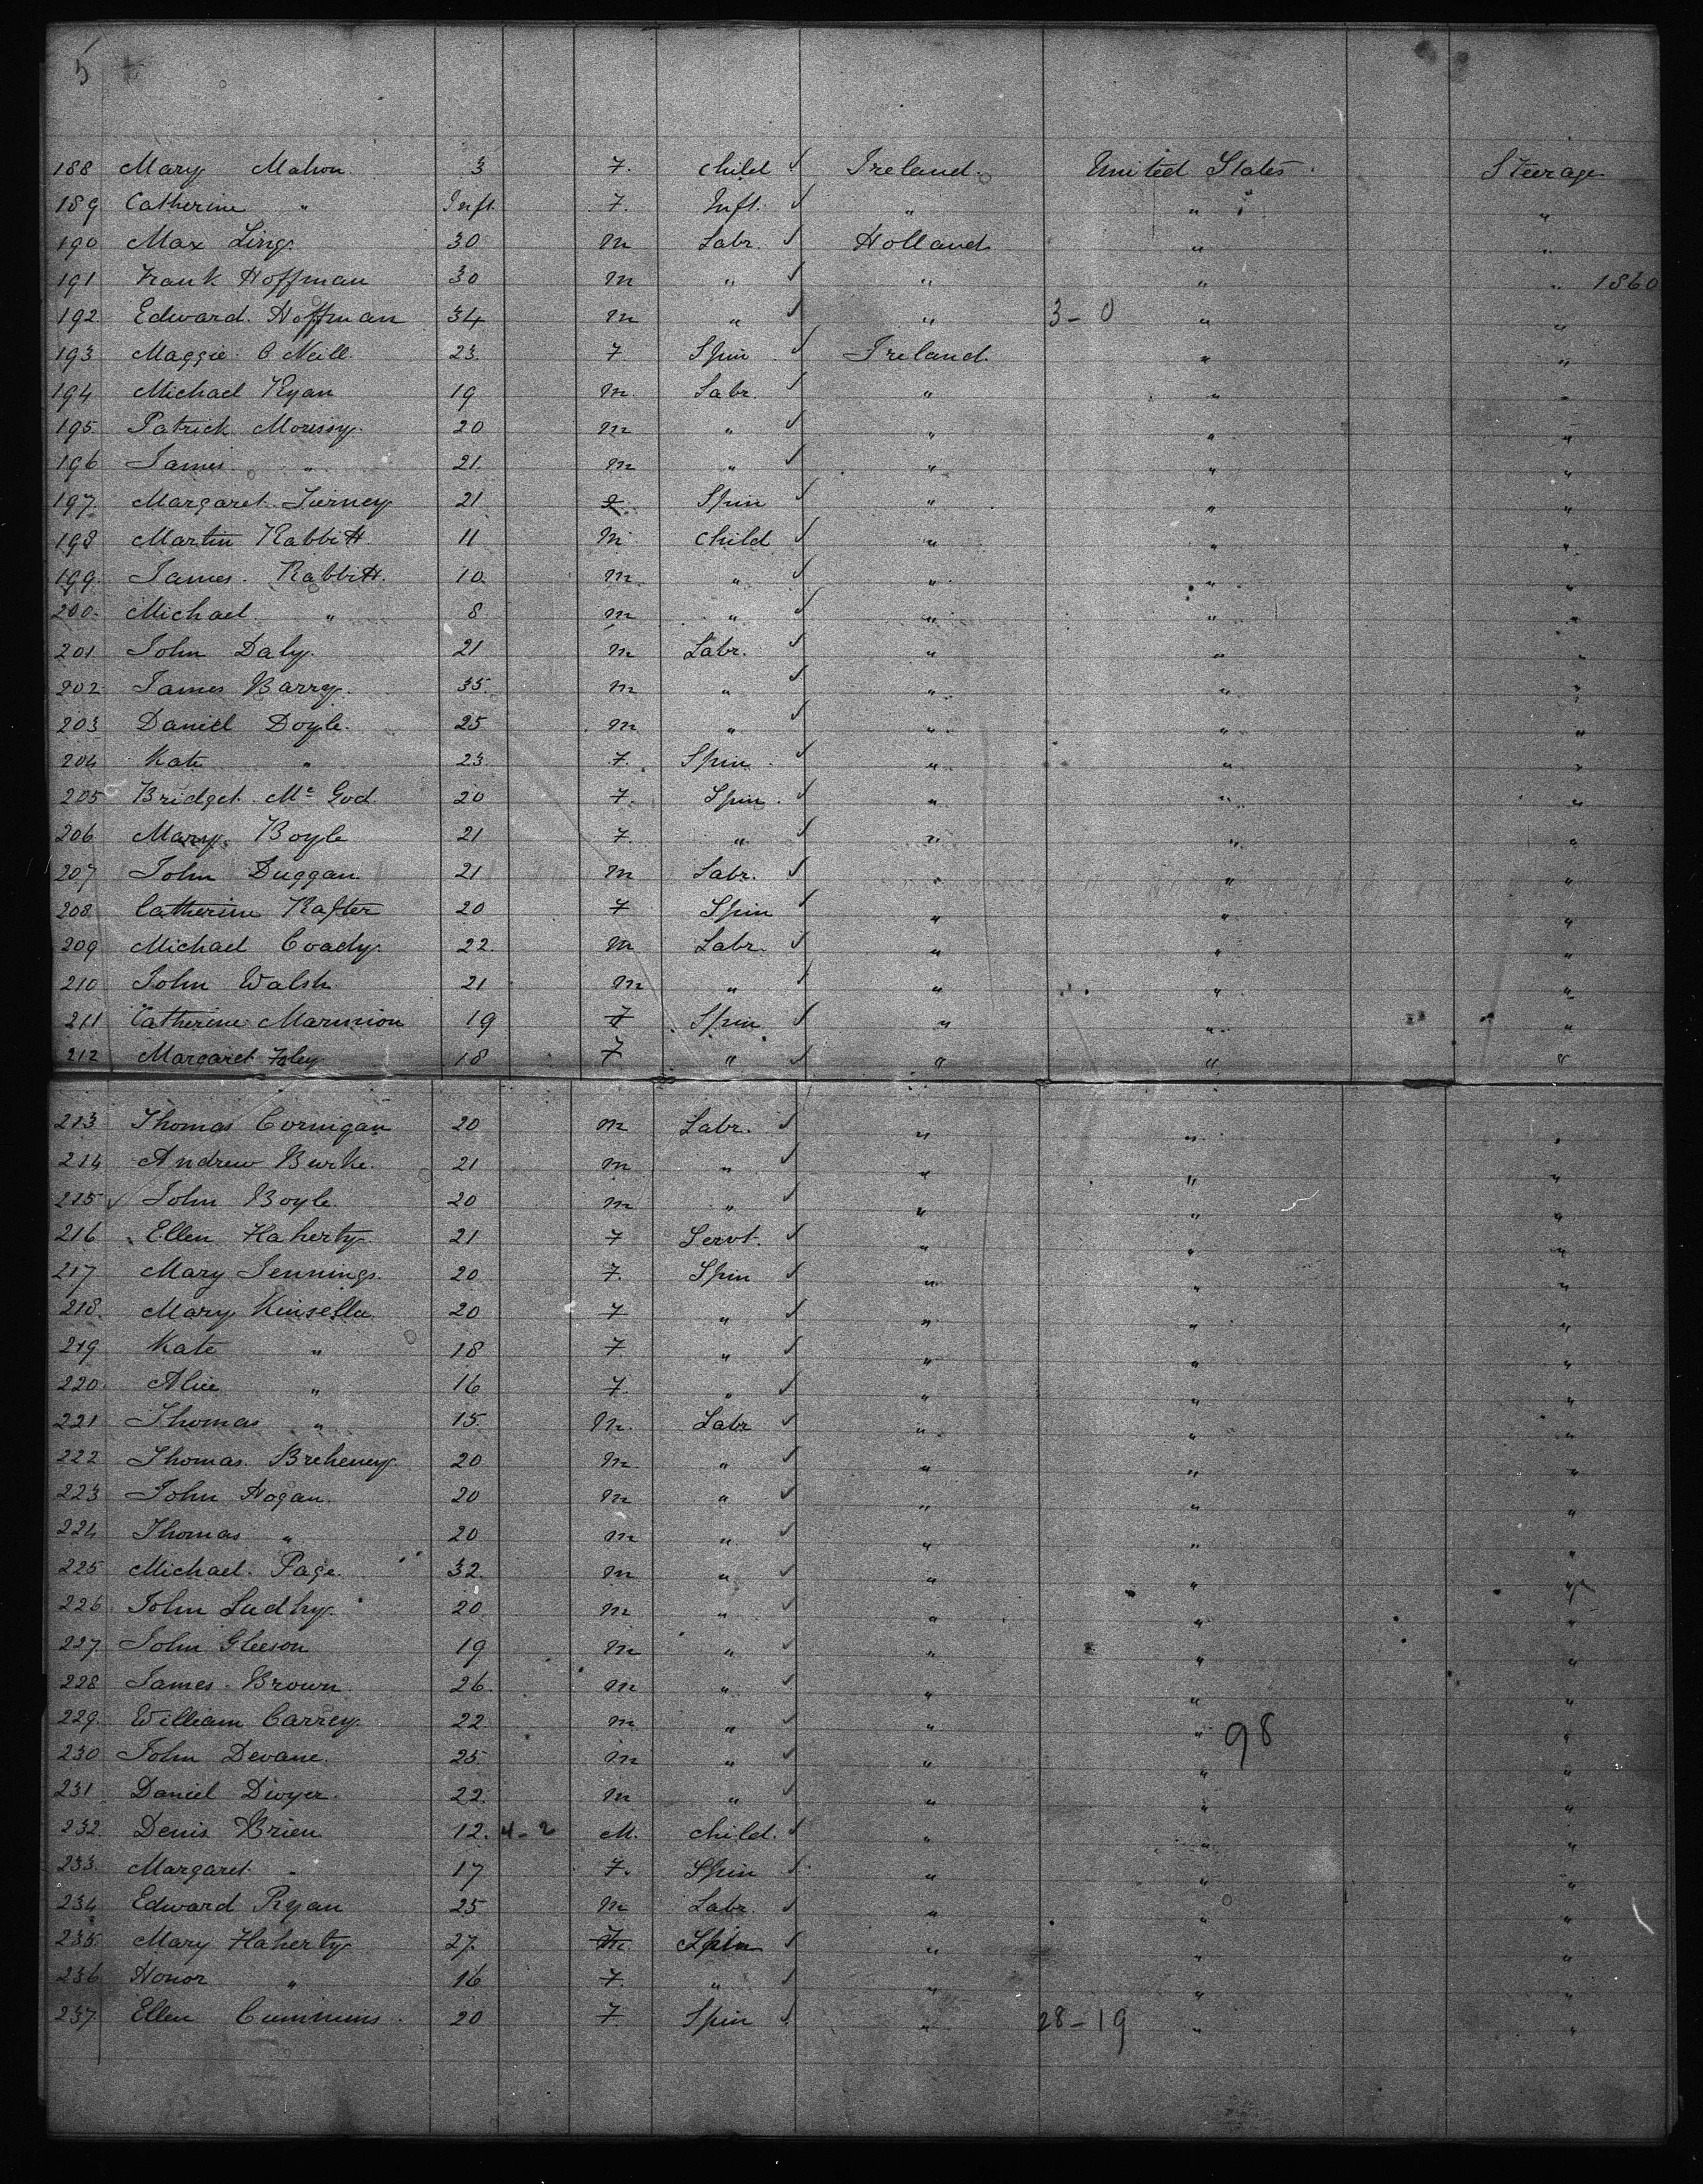 5
188 Mary Mahon 3 F. Child ✓ Ireland. United States. Steerage
189 Catherine " Inft. F. Inft. ✓ " " "
190 Max Ling. 30 M Labr. ✓ Holland " "
191 Frank Hoffman 30 M " ✓ " " " 1860
192 Edward. Hoffman 34 M " ✓ " 3-0 " "
193 Maggie O Neill. 23. F Spin ✓ Ireland. " "
194 Michael Ryan 19 M. Labr. ✓ " " "
195. Patrick Morissy. 20 M " ✓ " " "
196 James " 21. M " ✓ " " "
197. Margaret Tierney 21 Spin ✓ " " "
198 Martin Rabbitt. 11 M Child ✓ " " "
199. James. Rabbitt. 10. M " ✓ " " "
200. Michael " 8. M " ✓ " " "
201 John Daly. 21 M Labr. ✓ " " "
202 James Barry. 35. M " ✓ " " "
203 Daniel Doyle. 25 M " ✓ " " "
204 Kate " 23 F. Spin. ✓ " " "
205 Bridget Mc God. 20 F. Spin. ✓ " " "
206 Mary Boyle 21 F. " ✓ " " "
207 John Duggan 21 M Labr. ✓ " " "
208 Catherine Rafter 20 F Spin ✓ " " "
209 Michael Coady. 22. M Labr. ✓ " " "
210 John Walsh 21 M " ✓ " " "
211 Catherine Marmion 19 F Spin ✓ " " "
212 Margaret Foley 18 F " ✓ " " "
213 Thomas Cornigan 20 M Labr. ✓ " " "
214 Andrew Burke. 21 M " ✓ " " "
215 John Boyle. 20 M " ✓ " " "
216 Ellen Flaherty. 21 F Servt. ✓ " " "
217 Mary Jennings. 20 F. Spin ✓ " " "
218. Mary Kinsella 20 F " ✓ " " "
219 Kate " 18 F " ✓ " " "
220. Alice " 16 F. " ✓ " " "
221 Thomas " 15. M. Labr ✓ " " "
222 Thomas. Breheney. 20 M " ✓ " " "
223 John Hogan. 20 M " ✓ " " "
224 Thomas " 20 M " ✓ " " "
225 Michael. Page. 32. M " ✓ " " "
226. John 20 M " ✓ " " "
227. John Gleeson 19 M " ✓ " " "
228 James. Brown. 26. M " ✓ " " "
229. William Carrey. 22. M " ✓ " " 98 "
230 John Devane. 25. M " ✓ " " "
231 Daniel Dwyer. 22. M " ✓ " " "
232. Denis Brien 12. 4-2 M. Child. ✓ " " "
233. Margaret " 17 F. Spin ✓ " " "
234 Edward Ryan 25 M Labr. ✓ " " "
235. Mary Flaherty 27. F Spin ✓ " " "
236 Honor " 16 F. " ✓ " " "
237 Ellen Cummins. 20 F Spin ✓ " 28-19 " "